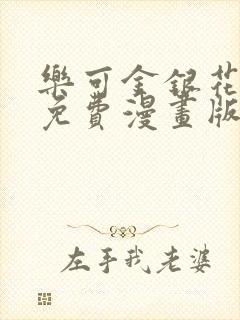 樂可金銀花
免費漫畫版
左手我老婆